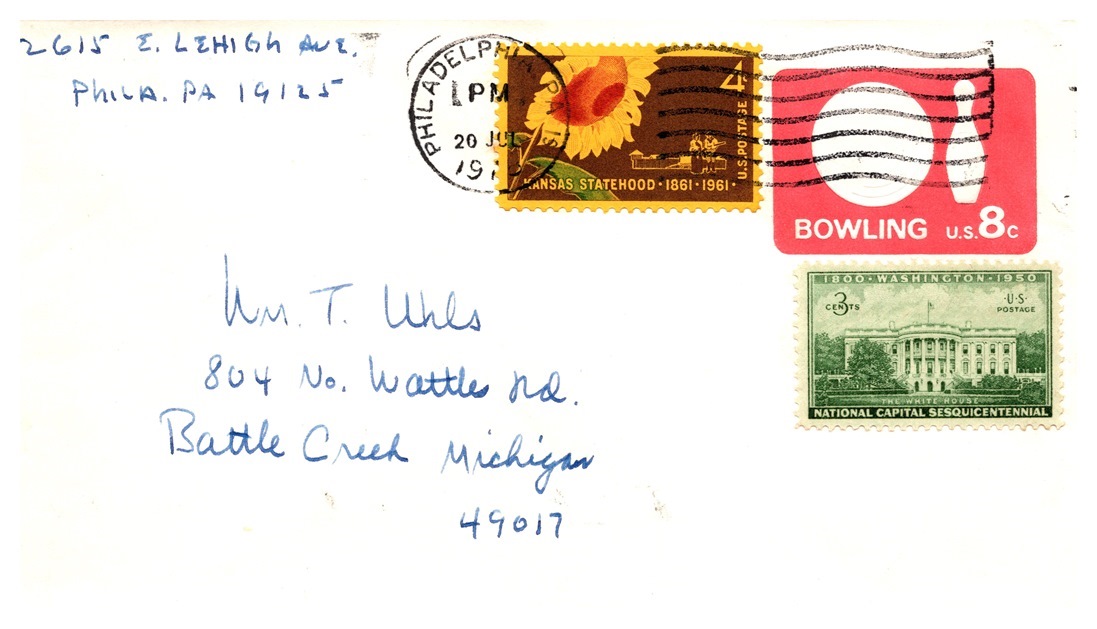 2615 E. LEHIGH AVE.
PHILA. PA 19125
PHILADELPHIA, PA
PM
20 JUL
4¢
U.S. POSTAGE
KANSAS STATEHOOD · 1861 · 1961 ·
BOWLING U.S. 8c
1800 · WASHINGTON · 1950
3 CENTS
· U · S ·
POSTAGE
THE WHITE HOUSE
NATIONAL CAPITAL SESQUICENTENNIAL
Wm. T. Uhls
804 No. Wattles Rd.
Battle Creek Michigan
49017